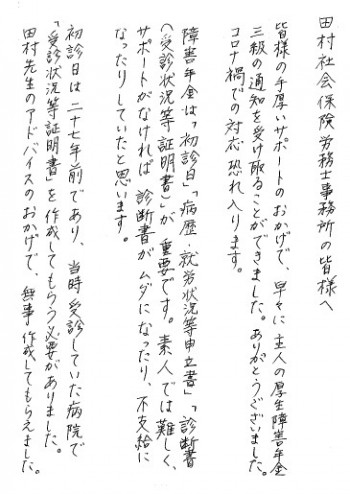 田村社会保険労務士事務所の皆様へ
皆様の手厚いサポートのおかげで、早々に主人の厚生障害年金
三級の通知を受け取ることができました。ありがとうございました。
コロナ禍での対応恐れ入ります。
障害年金は「初診日」「病歴・就労状況等申立書」「診断書
(受診状況等証明書)」が重要です。素人では難しく、
サポートがなければ診断書がムダになったり、不支給に
なったりしていたと思います。
初診日は二十七年前であり、当時受診していた病院で
「受診状況等証明書」を作成してもらう必要がありました。
田村先生のアドバイスのおかげで、無事作成してもらえました。